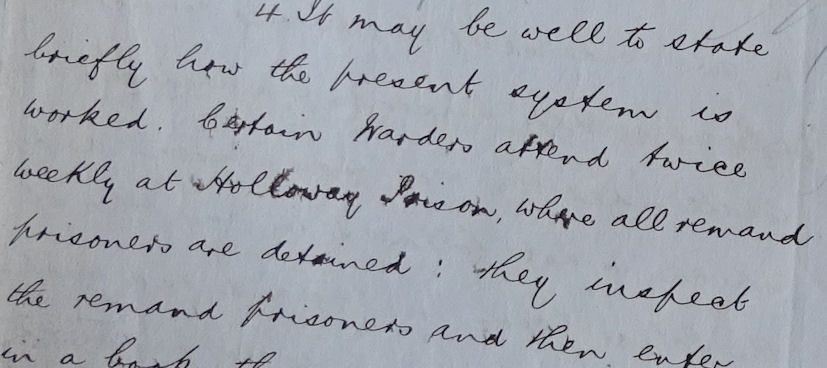 4. It may be well to state
briefly how the present system is
worked. Certain Warders attend twice
weekly at Holloway Prison, where all remand
prisoners are detained : they inspect
the remand prisoners and then enter
in a book